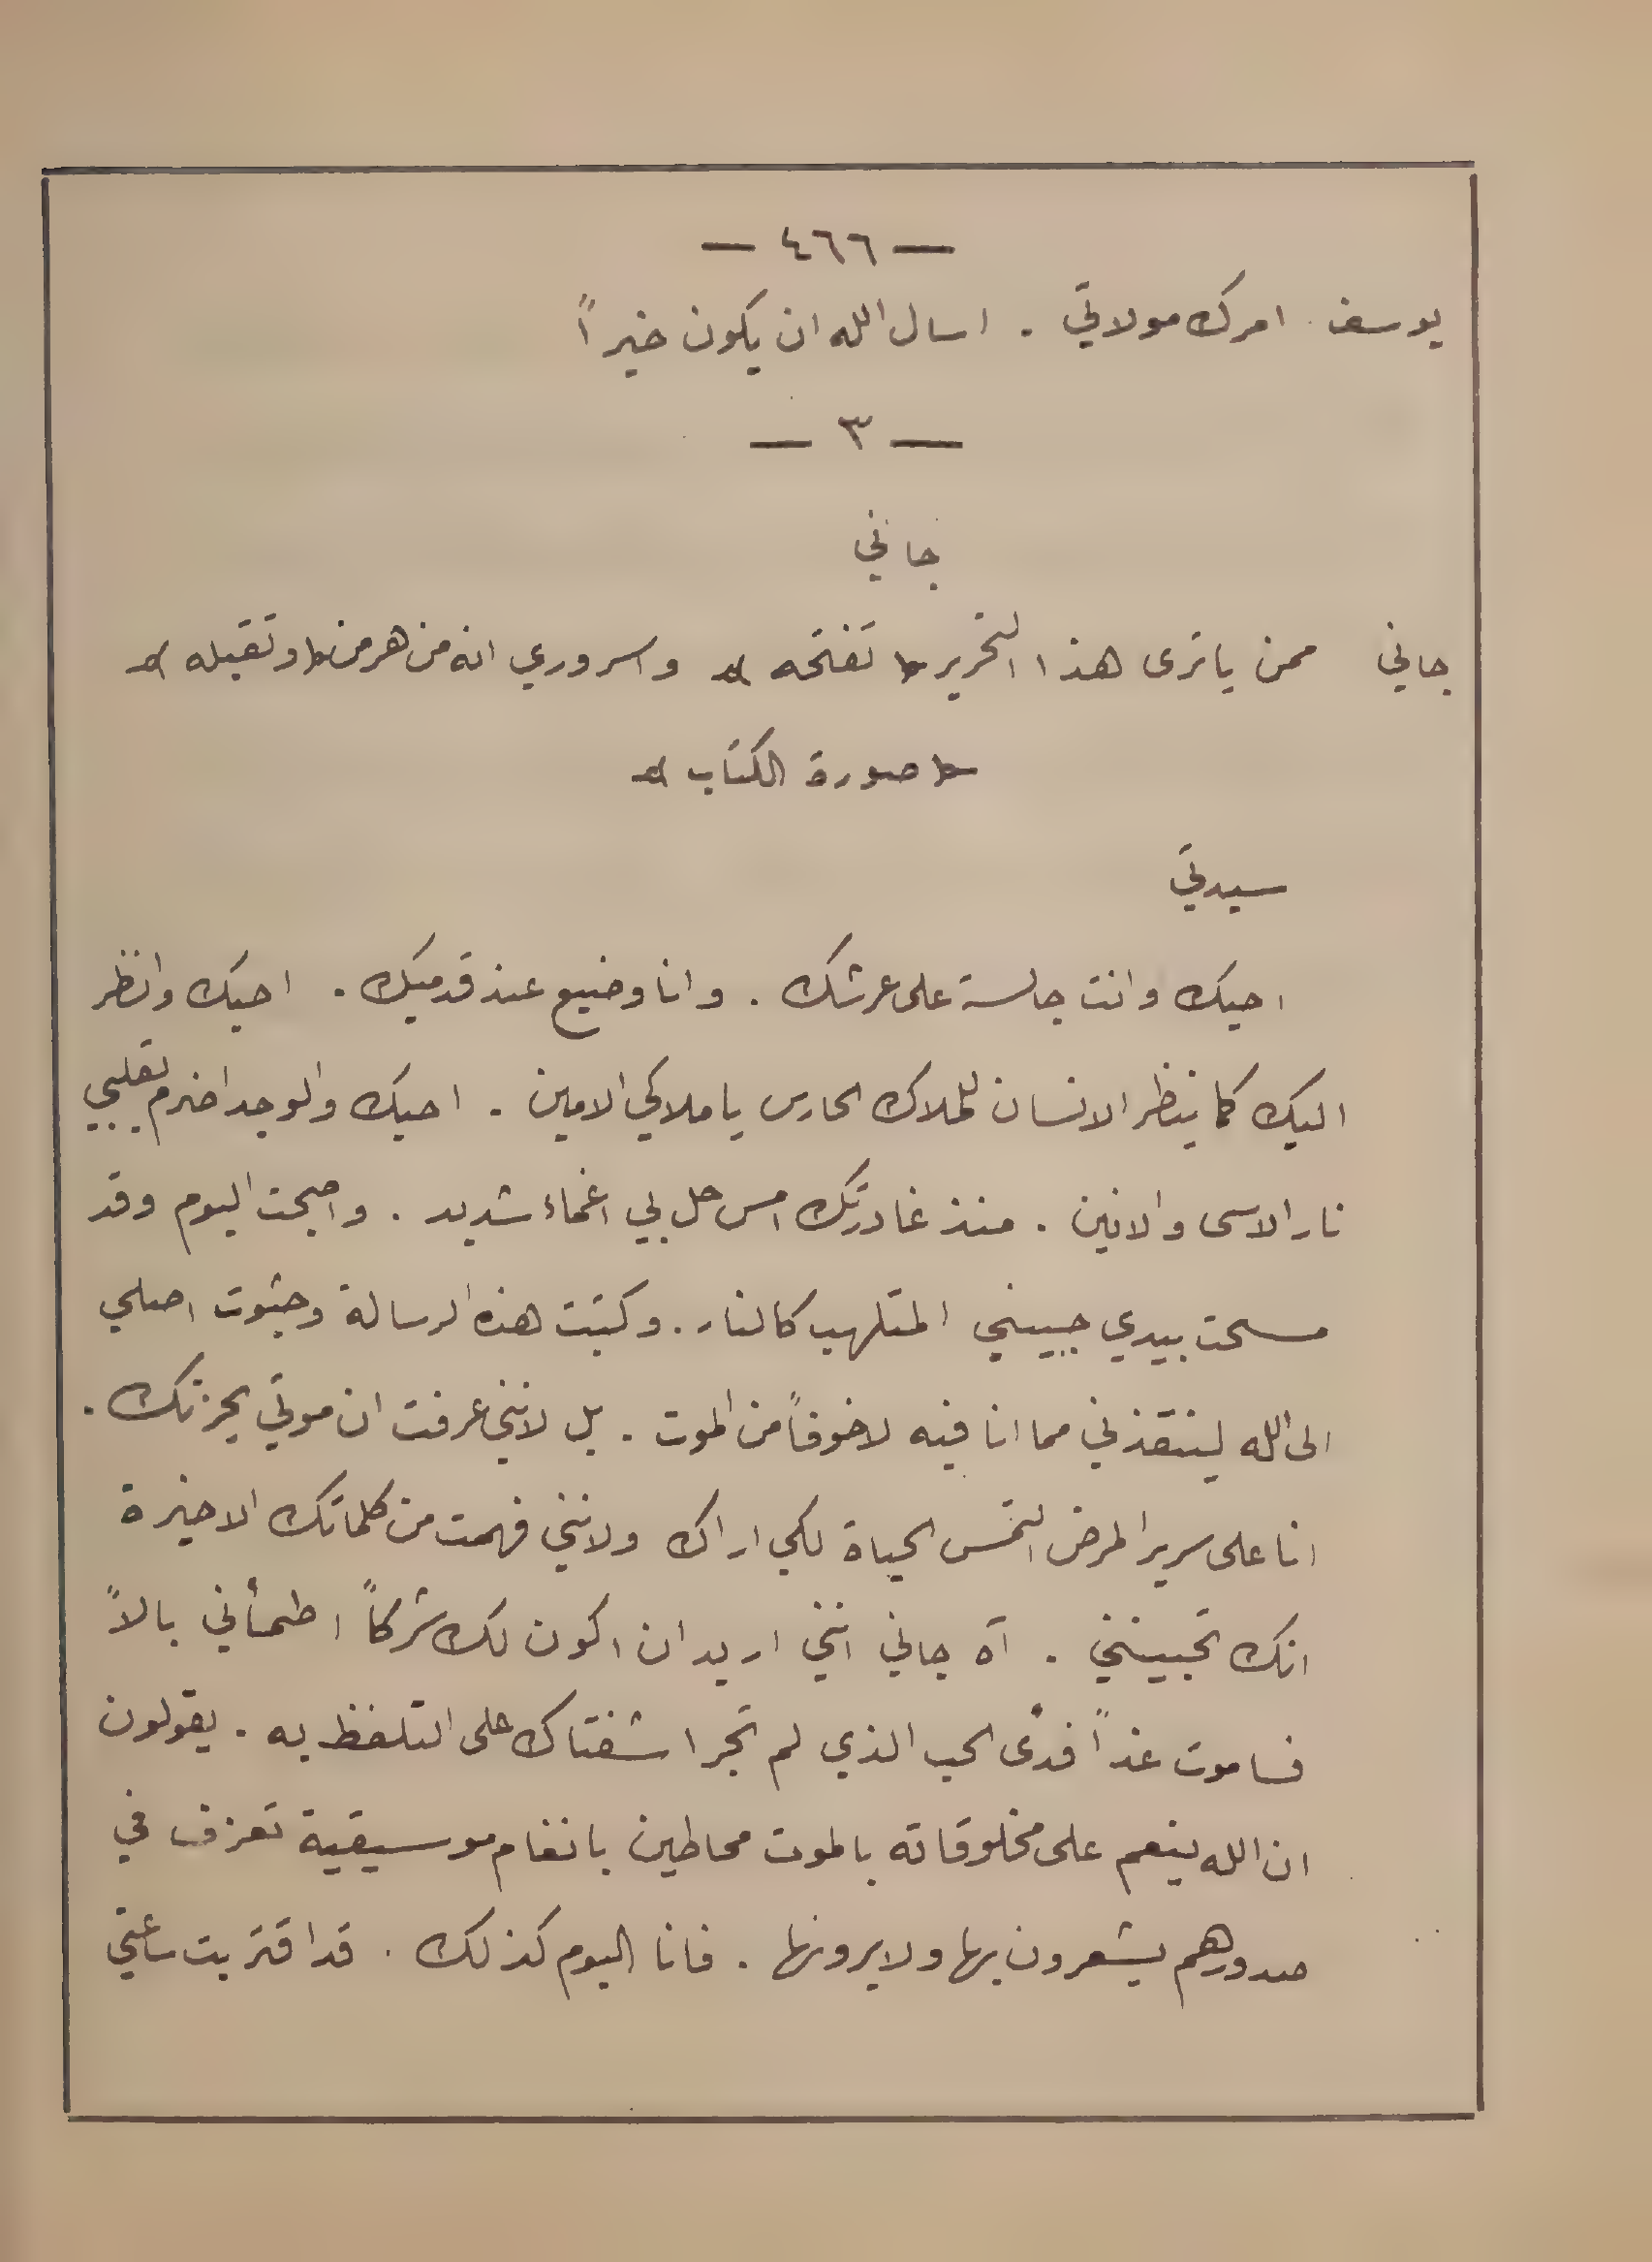 — ٤٦٦ —
يوسف امرك مولاتي . اسال الله ان يكون خيراً
— ٣ —
جاني
جاني ممن يا ترى هذا التحرير تفتحه واسروري انه من هرمن وتقبله
صورة الكتاب
سيدتي
احبك وانت جالسة على عرشك . وانا وضيع عند قدميك . احبك وانظر
اليك كما ينظر الانسان للملاك الحارس يا ملاكي الامين . احبك والوجد اضرم بقلبي
نار الاسى والانين . منذ غادرتك امس حل بي اغماء شديد . واصبحت اليوم وقد
مسحت بيدي جبيني المتلهب كالنار . وكتبت هذه الرسالة وجثوت اصلي
الى الله لينقذني مما انا فيه لا خوفاً من الموت . بل لانني عرفت ان موتي يحزنك .
انا على سرير المرض التمس الحياة لكي اراك ولانني فهمت من كلماتك الاخيرة
انك تحبينني . آه جاني انني اريد ان اكون لك شركاً اطمأني بالاً
فساموت غداً فدى الحب الذي لم تجرا شفتاك على التلفظ به . يقولون
ان الله ينعم على مخلوقاته بالموت محاطين بانغام موسيقية تعزف في
صدورهم يشعرون بها ولا يرونها . فانا اليوم كذلك . قد اقتربت ساعتي